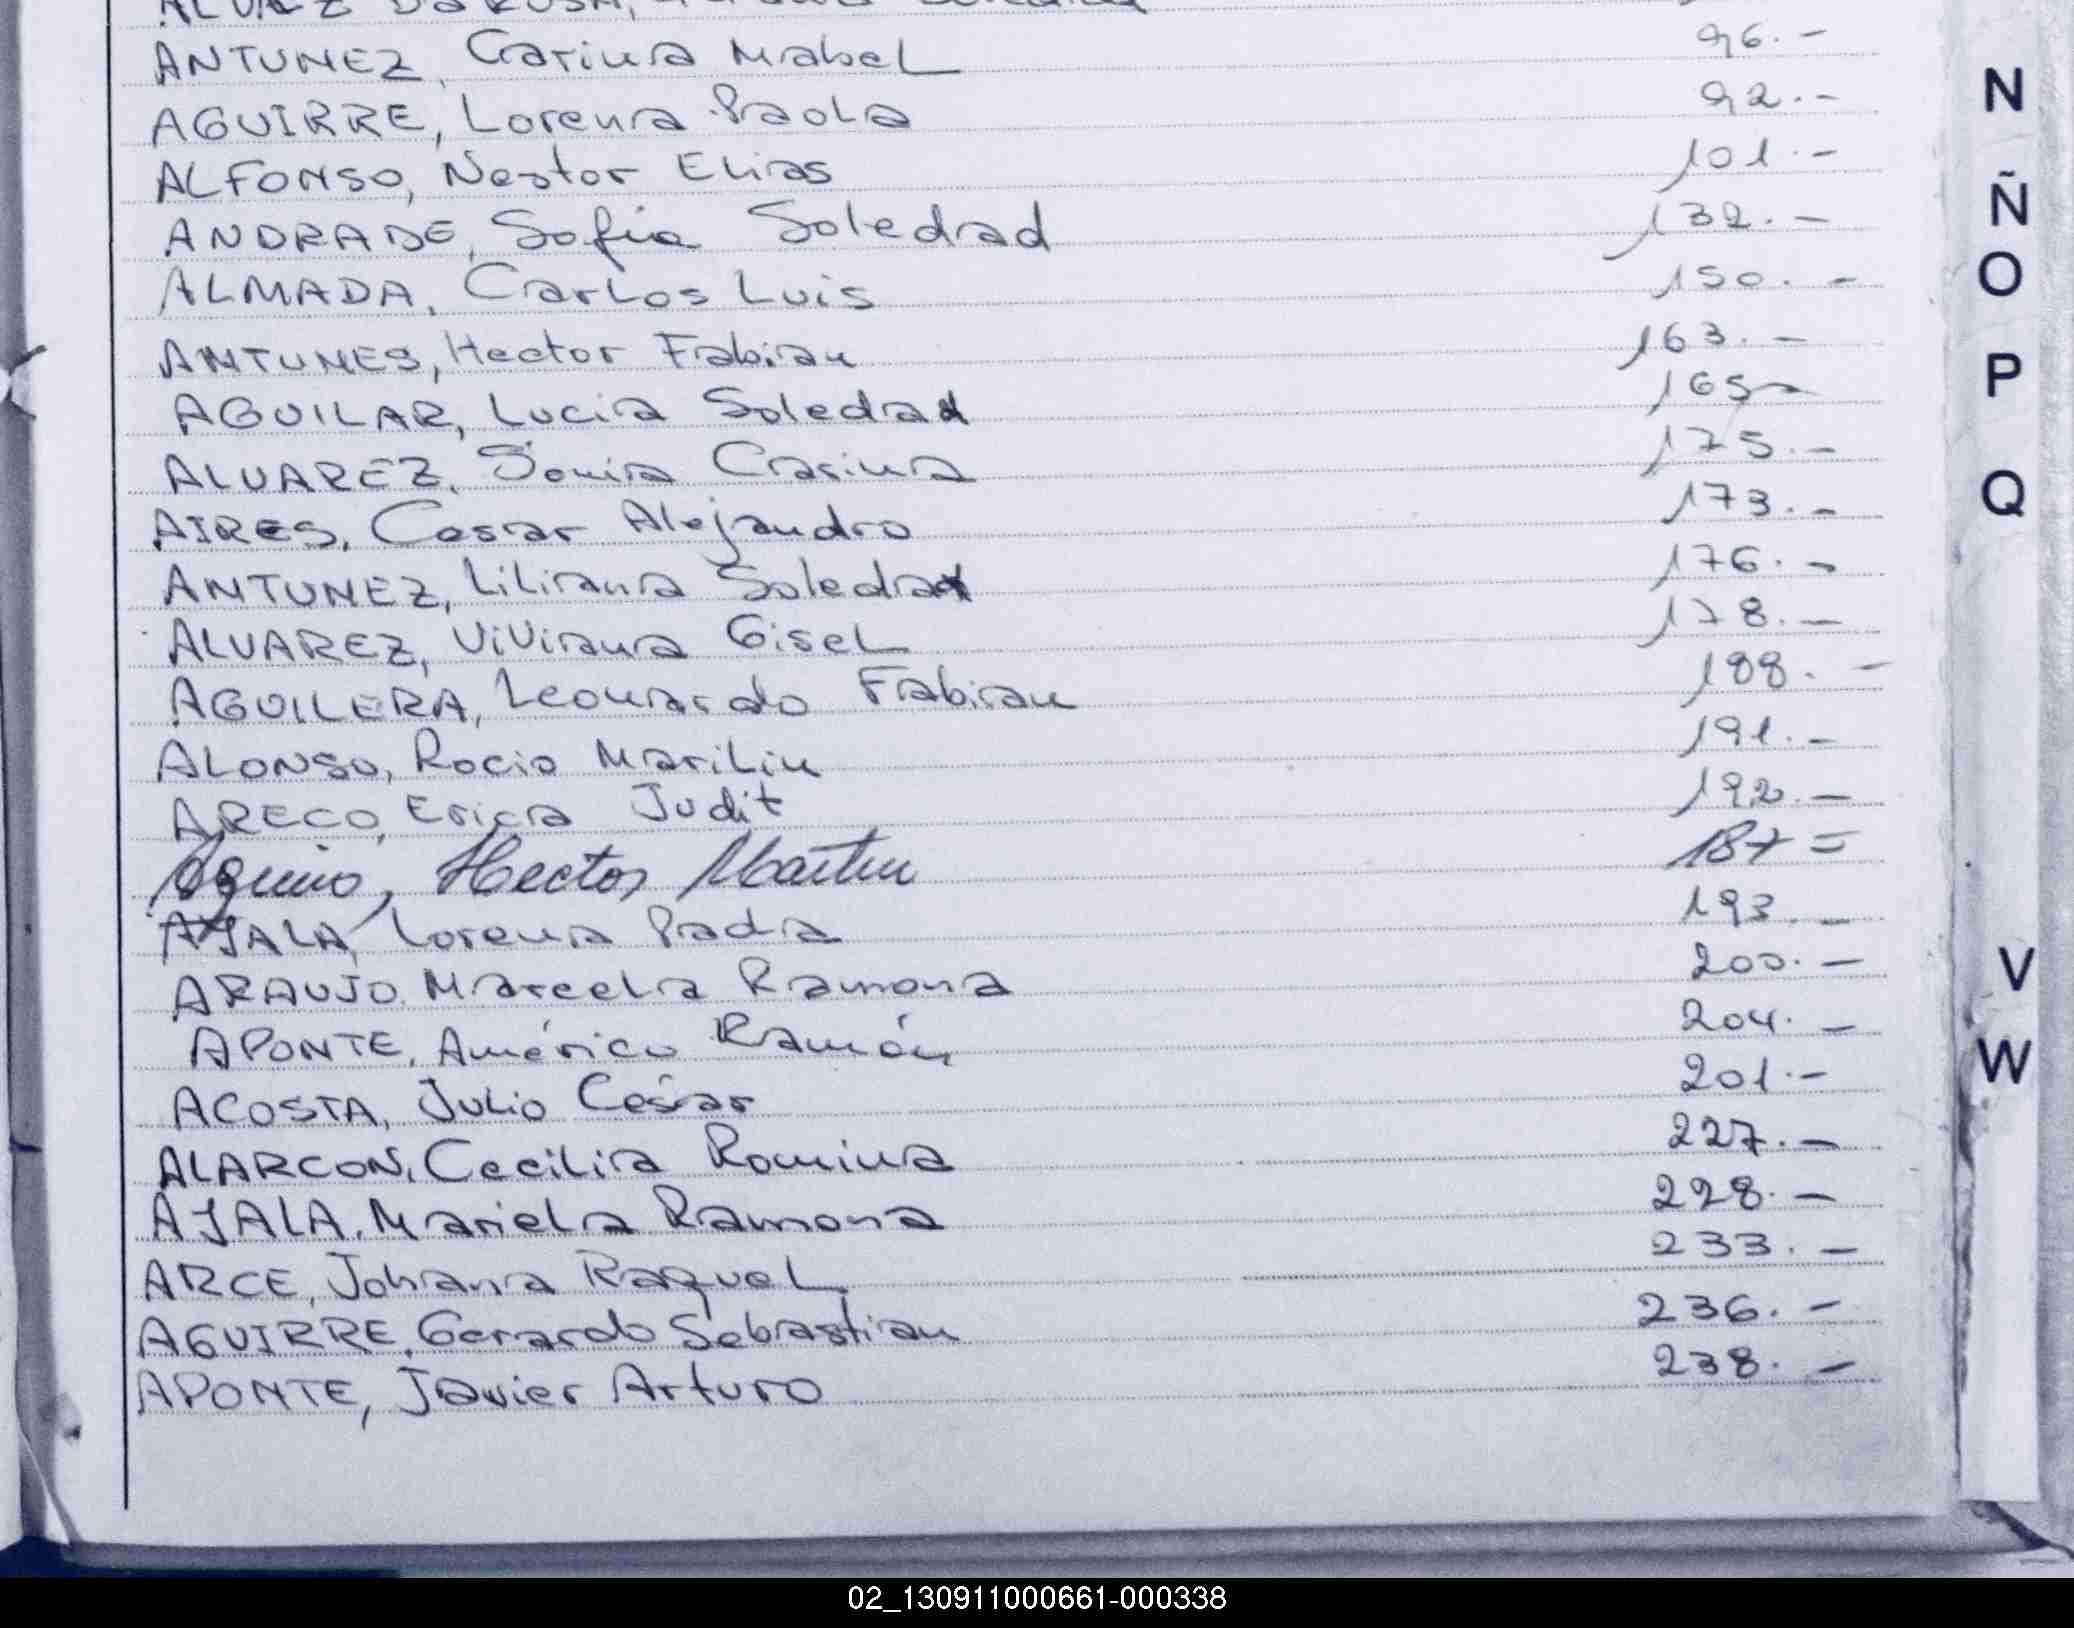 ANTUNEZ, Carina Mabel 96.-
AGUIRRE, Lorena Paola 92.-
ALFONSO, Nestor Elias 101.-
ANDRADE, Sofia Soledad 132.-
ALMADA, Carlos Luis 150.-
ANTUNES, Hector Fabian 163.-
AGUILAR, Lucia Soledad 165-
ALVAREZ, Sonia Carina 175.-
AIRES, Cesar Alejandro 173.-
ANTUNEZ, Liliana Soledad 176.-
ALVAREZ, Viviana Gisel 178.-
AGUILERA, Leonardo Fabian 188.-
ALONSO, Rocio Marilin 191.-
ARECO, Erica Judit 192.-
Aquino, Hector Martin 187=
AJALA, Lorena 193.-
ARAUJO, Marcela Ramona 200.-
APONTE, Américo Ramón 204.-
ACOSTA, Julio César 201.-
ALARCON, Cecilia Romina 227.-
AJALA, Mariela Ramona 228.-
ARCE, Johana Raquel 233.-
AGUIRRE, Gerardo Sebastian 236.-
APONTE, Javier Arturo 238.-
N
Ñ
O
P
Q
V
W
02_130911000661-000338